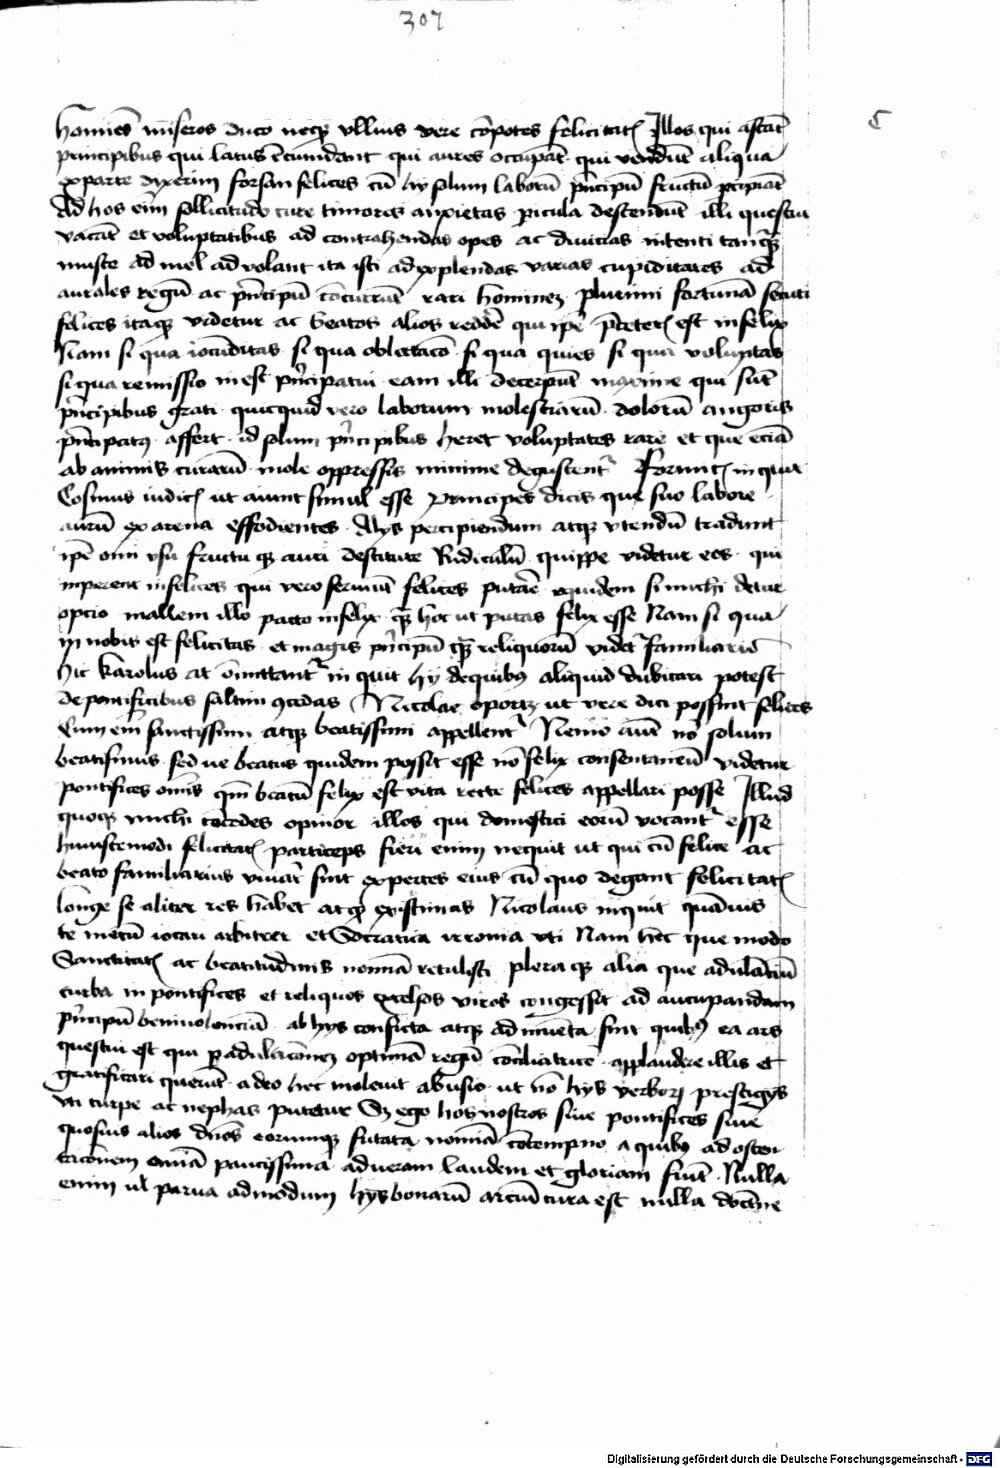 307
C
homines miseros duco neqȝ vllius vere cōpotes felicitatꝭ Illos qui astāt
principibus qui latus circūdant qui aures occupāt qui vendūt aliqua
ex parte dixerim forsan felices cū hy solum laborū pͥncipū fructū ꝑcipiāt
Ad hos eīm sollicitudo cure timores anxietas ꝑicula descendūt illi questui
vacāt et voluptatibus ad contrahendas opes ac diuicias intenti tanqȝ
muste ad mel aduolant ita isti ad explendas varias cupiditates ad
aurales regū ac pͥncipū concurrūt rari hominez plurimi fortunā secuti
felices itaqȝ videtur ac beatos alios reddē qui ipē p̄teterꝭ est infelix
Nam si qua iocūditas si qua oblectacō si qua quies si qua voluptas
si qua remissio inest pͥncipatui eam illi decerpūt maxime qui sūt
pͥncipibus grati quicquid vero laborum molestiarū dolorū angoris
pͥncipatꝰ affert id solum pͥncipibus heret voluptates rare et que eciā
ab animis curarū mole oppressis minime degustentᷣ Fortunꝭ inquit
Cosmus iudicꝭ ut aiunt simul esse principes dicis que suo labore
aurū ex arena effodientes Alys percipiendum atqȝ vtendū tradunt
ipē oīm vsu fructu qȝ auri destitute Ridiculū quippe videtur eos qui
imperent infelices qui vero seruiūt felices putāē equidem si michi detur
optio mallem illo pacto infelix qȝ hoc ut putas felix esse Nam si qua
in nobis est felicitas et magis pͥncipū qȝ reliquorū videtᷣ familiaris
hic karolus at omittantᷣ inquit hy de quibꝰ aliquid dubitari potest
de pontificibus saltim ꝯcedas Nicolae oportȝ ut vere dici possint felices
Cum eīm sanctissimi atqȝ beatissimi appellentᷣ Nemo autē nō solum
beatissimus sed ne beatus quidem possit esse nō felix consentaneū videtur
pontifices omīs qm̄ beatū felix est vita recte felices appellari posse Illud
quoqȝ michi cōcedes opinor illos qui domestici eorū vocantᷣ esse
huiuscemodi felicitatꝭ particeps fieri enim nequit ut qui cū felice ac
beato familiarius viuāt sint expertes eius cū quo degant felicitatꝭ
longe se aliter res habet atqȝ existimas Nicolaus inquit quāuis
te mecū iocari arbitrer et Socratica irronia vti Nam hec que modo
Sanctitatꝭ ac beatitudinis nomīa retulisti pleraqȝ alia que adulātiū
turba in pontifices et reliquos excelsos viros congessit ad aucupandam
pͥncipū beniuolenciā ab hys conficta atqȝ adinuēta sint quibꝰ ea ars
questui est qui ꝑ adulacōnez optimā regū cōciliatricē applaudere illis et
gratificari querūt adeo hec inoleuit abusio ut nō hys verborꝝ prestigys
vti turpe ac nephas putetur Sȝ ego hos nostros siue pontifices siue
quosuis alios dn̄os eorumqȝ futata nomīa cōtempno a quibꝰ ad osten
tacionem omīa paucissima ad veram laudem et gloriam fiūt Nulla
enim ul parua admodum hys bonarū arciū cura est nulla doctīne
Digitalisierung gefördert durch die Deutsche Forschungsgemeinschaft - DFG